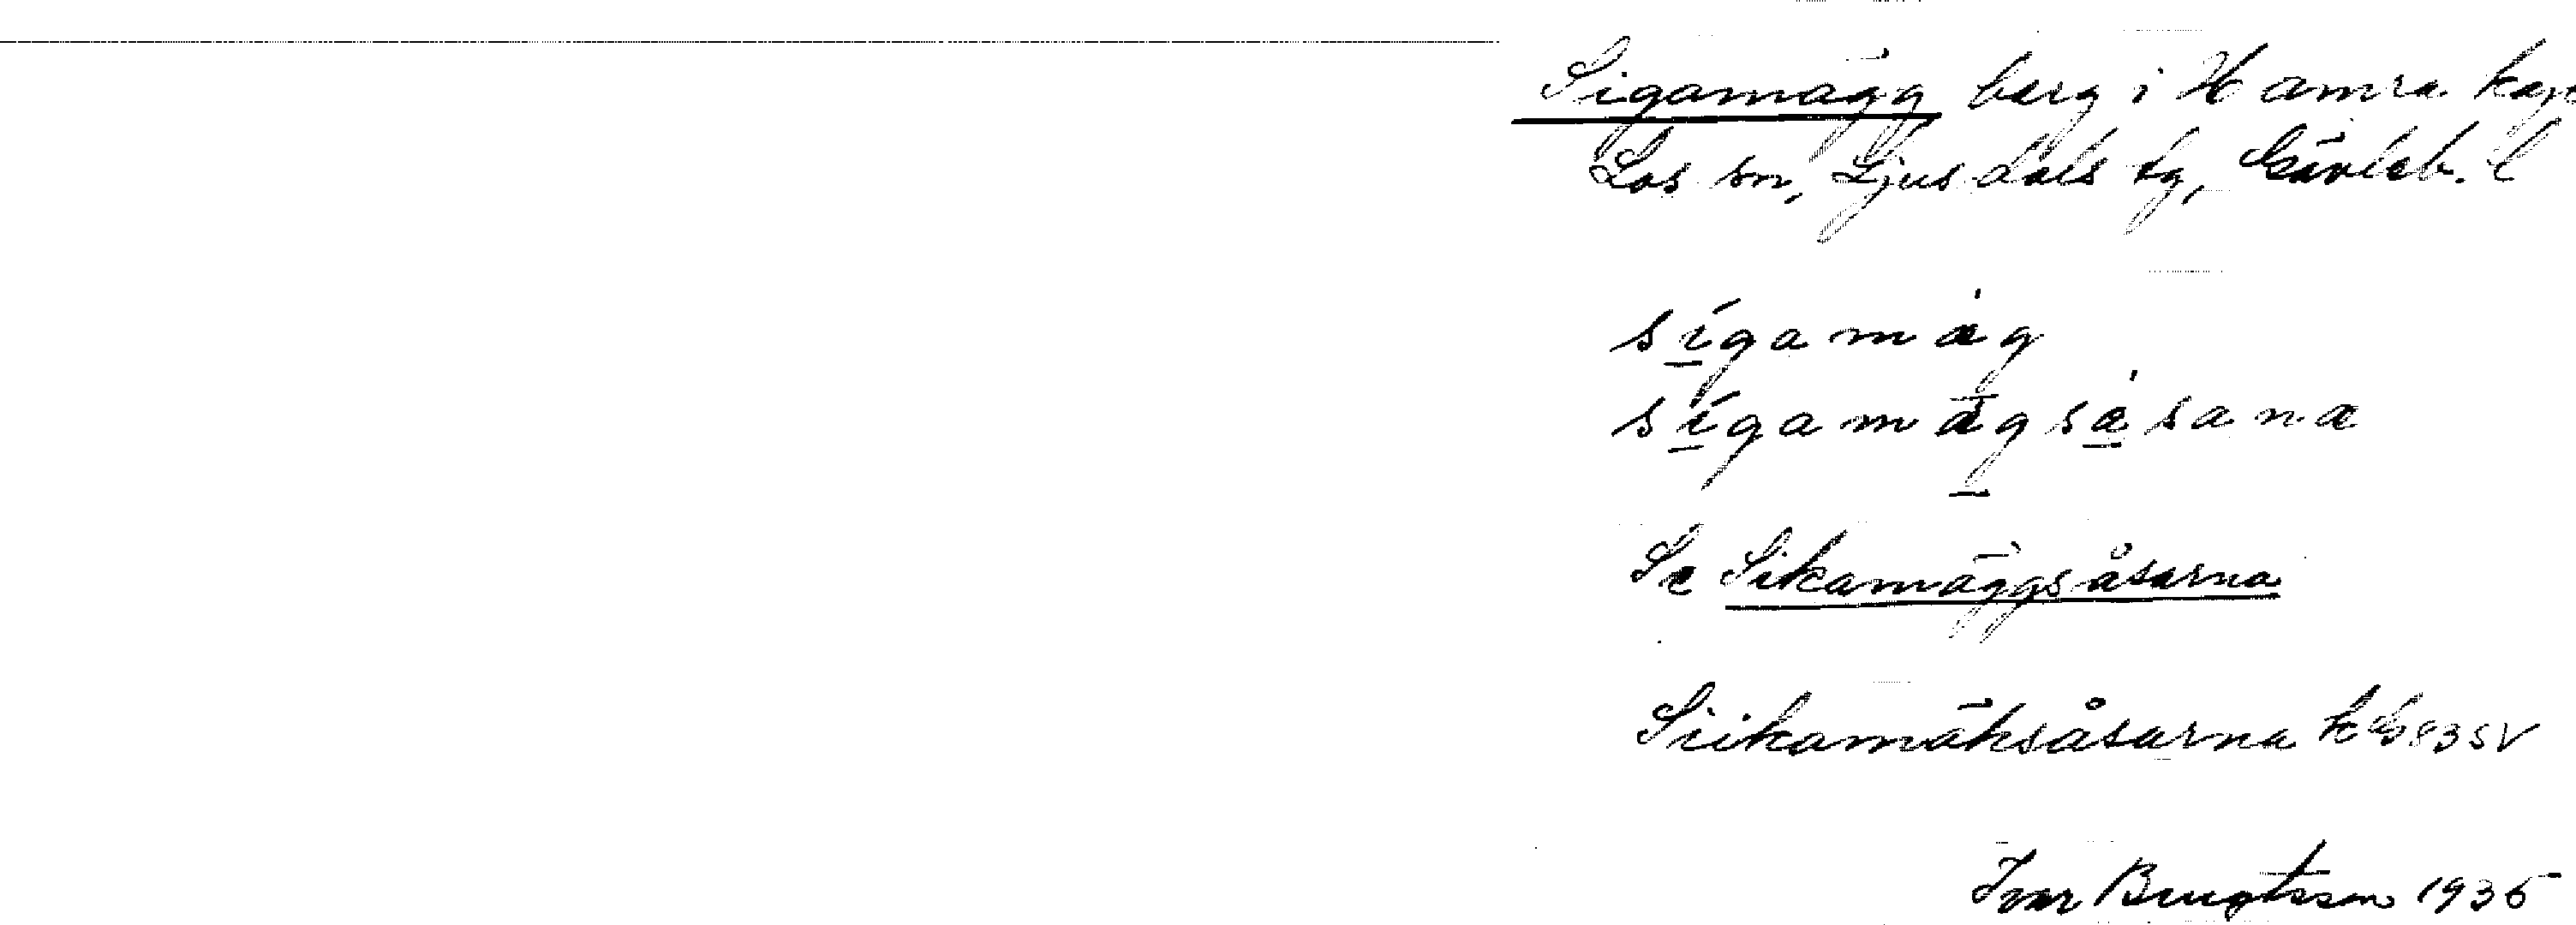 Sigamägg berg i Hamra kap
Los sn, Ljusdals tg, Gävleb. l
sigamäg
sigamägsåsana
Se Sikamäggsåsarna
Siikamäksåsarna
Ivar Bengtsson 1935